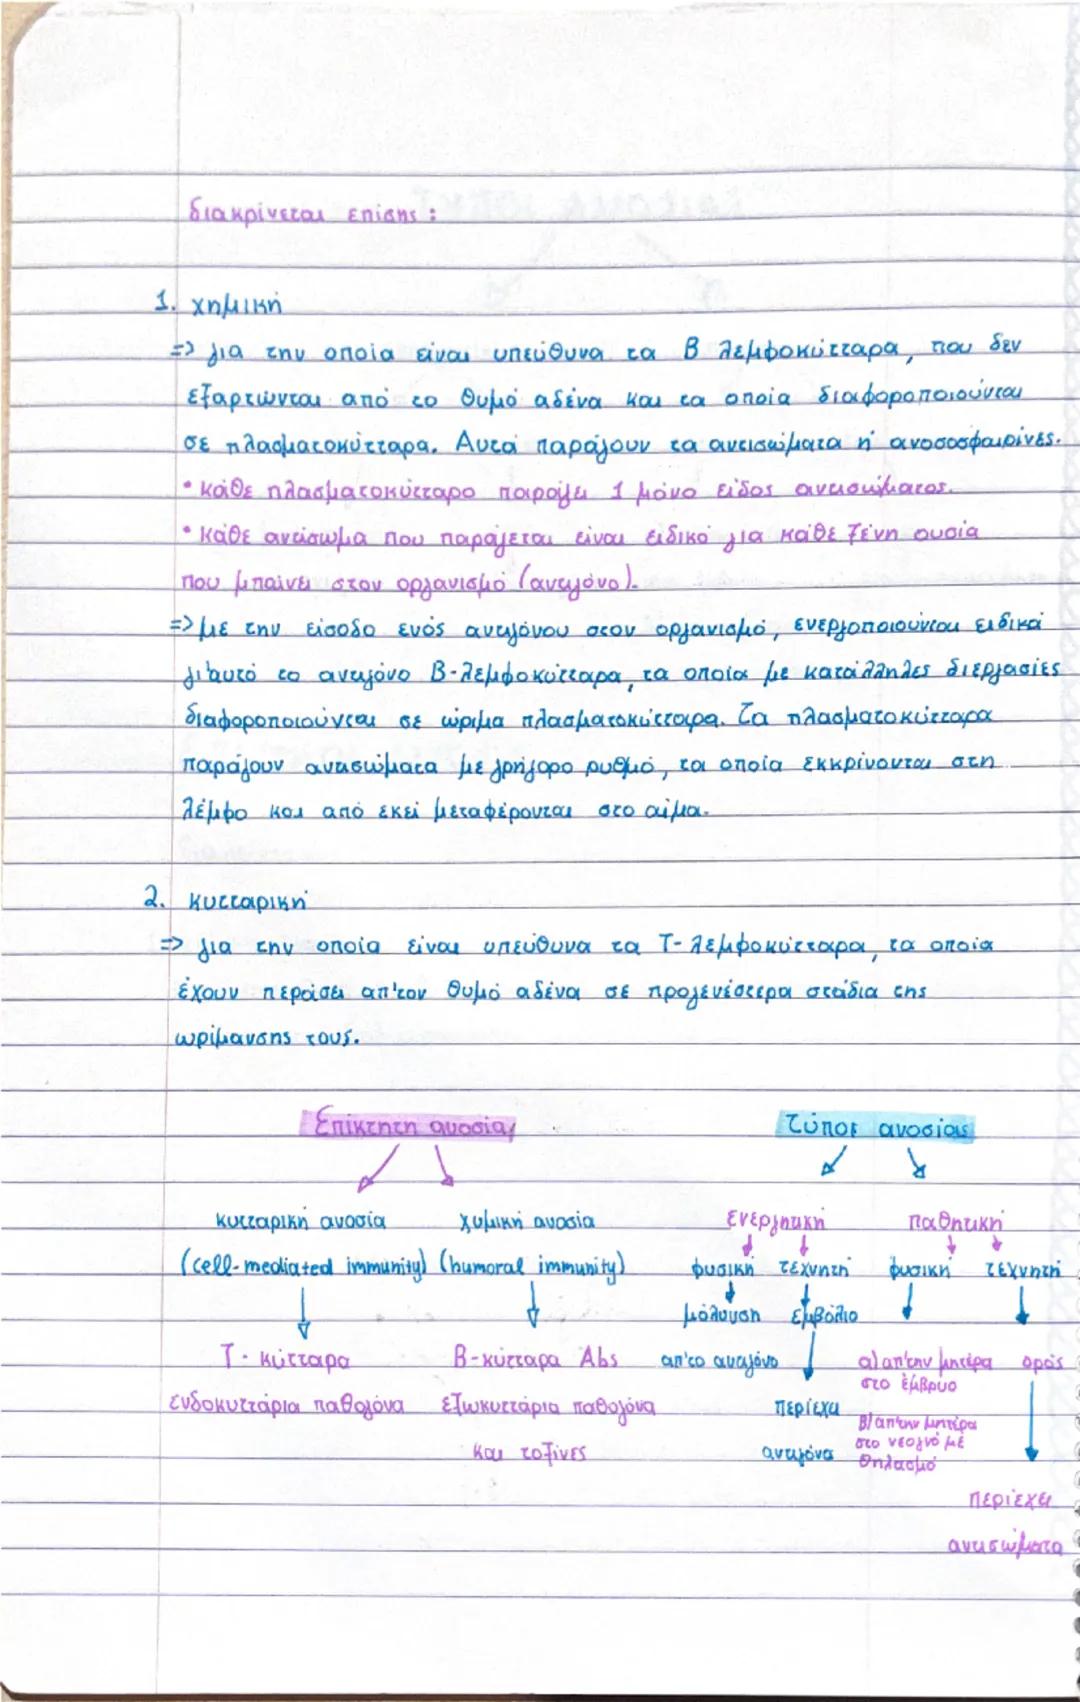 διακρίνεται επίσης :
1. χημική
=> για την οποία είναι υπεύθυνα τα Β λεμφοκύτταρα, που δεν
εξαρτώνται από το θυμό αδένα και τα οποία διαφοροποιούνται
σε πλασματοκύτταρα. Αυτά παράγουν τα αντισώματα ή ανοσοσφαιρίνες.
• κάθε πλασματοκύτταρο παράγει 1 μόνο είδος αντισώματος.
• κάθε αντίσωμα που παράγεται είναι ειδικό για κάθε ξένη ουσία
που μπαίνει στον οργανισμό (αντιγόνο).
=> με την είσοδο ενός αντιγόνου στον οργανισμό, ενεργοποιούνται ειδικά
γι'αυτό το αντιγόνο Β-λεμφοκύτταρα, τα οποία με κατάλληλες διεργασίες
διαφοροποιούνται σε ώριμα πλασματοκύτταρα. Τα πλασματοκύτταρα
παράγουν αντισώματα με γρήγορο ρυθμό, τα οποία εκκρίνονται στη
λέμφο και από εκεί μεταφέρονται στο αίμα.
2. κυτταρική
=> για την οποία είναι υπεύθυνα τα Τ-λεμφοκύτταρα, τα οποία
έχουν περάσει απ'τον θυμό αδένα σε προγενέστερα στάδια της
ωρίμανσης τους.
Επίκτητη ανοσία Τύποι ανοσίας
κυτταρική ανοσία χυμική ανοσία ενεργητική παθητική
(cell-mediated immunity) (humoral immunity) φυσική τεχνητή φυσική τεχνητή
μόλυνση εμβόλιο
Τ-κύτταρα Β-κύτταρα Abs απ'το αντιγόνο α) απ'την μητέρα ορός
στο έμβρυο
ενδοκυττάρια παθογόνα εξωκυττάρια παθογόνα περιέχει β) απ'την μητέρα
και τοξίνες αντιγόνα στο νεογνό με
θηλασμό
περιέχει
αντισώματα